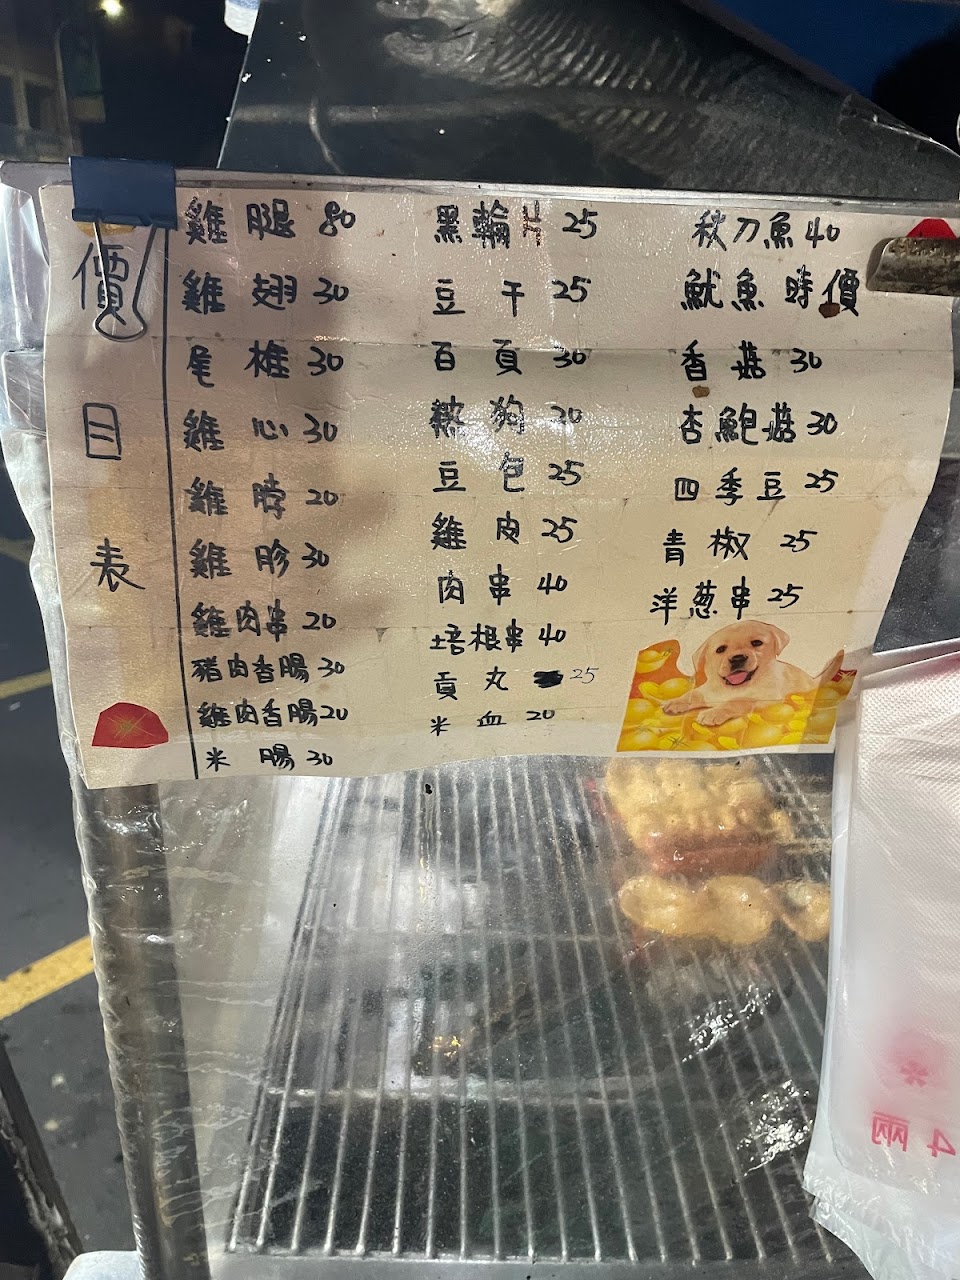 價目表
雞腿 80
雞翅 30
尾椎 30
雞心 30
雞脖 20
雞胗 30
雞肉串 20
豬肉香腸 30
雞肉香腸 20
米腸 30
黑輪片 25
豆干 25
百頁 30
熱狗 20
豆包 25
雞皮 25
肉串 40
培根串 40
貢丸 25
米血 20
秋刀魚 40
魷魚 時價
香菇 30
杏鮑菇 30
四季豆 25
青椒 25
洋葱串 25
4兩